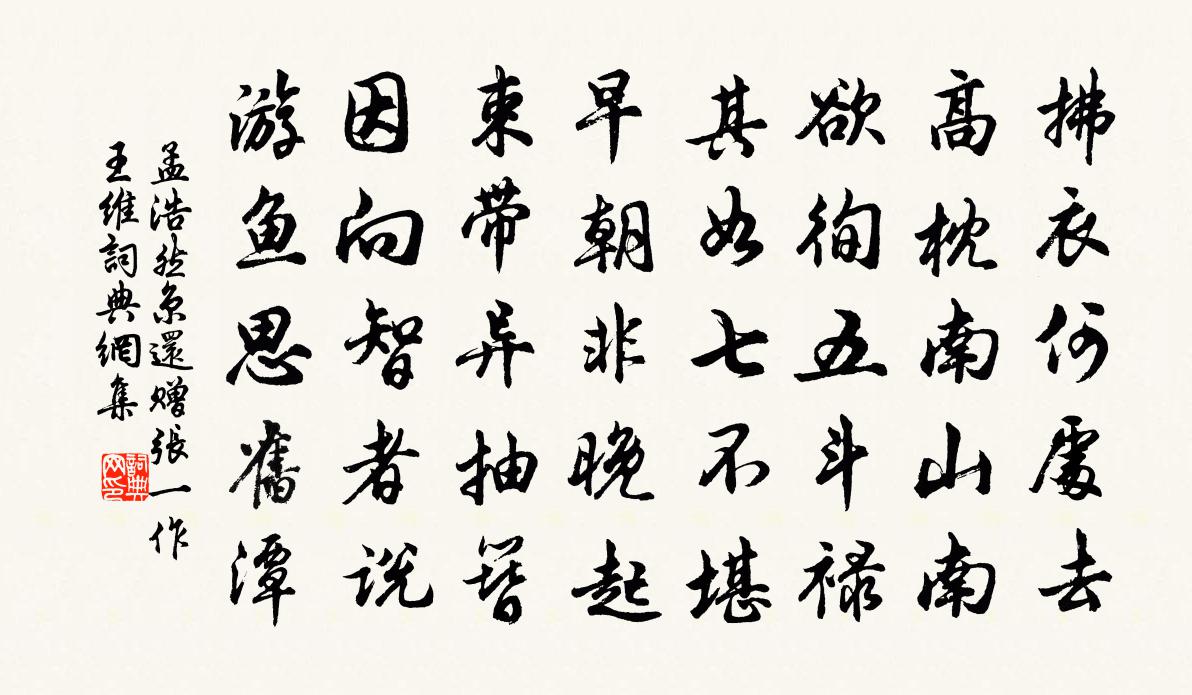 拂衣何處去
高枕南山南
欲徇五斗禄
其如七不堪
早朝非晚起
束帶异抽簪
因向智者说
游鱼思舊潭
孟浩然京還赠張一作
王維詞典網集
詞典网印